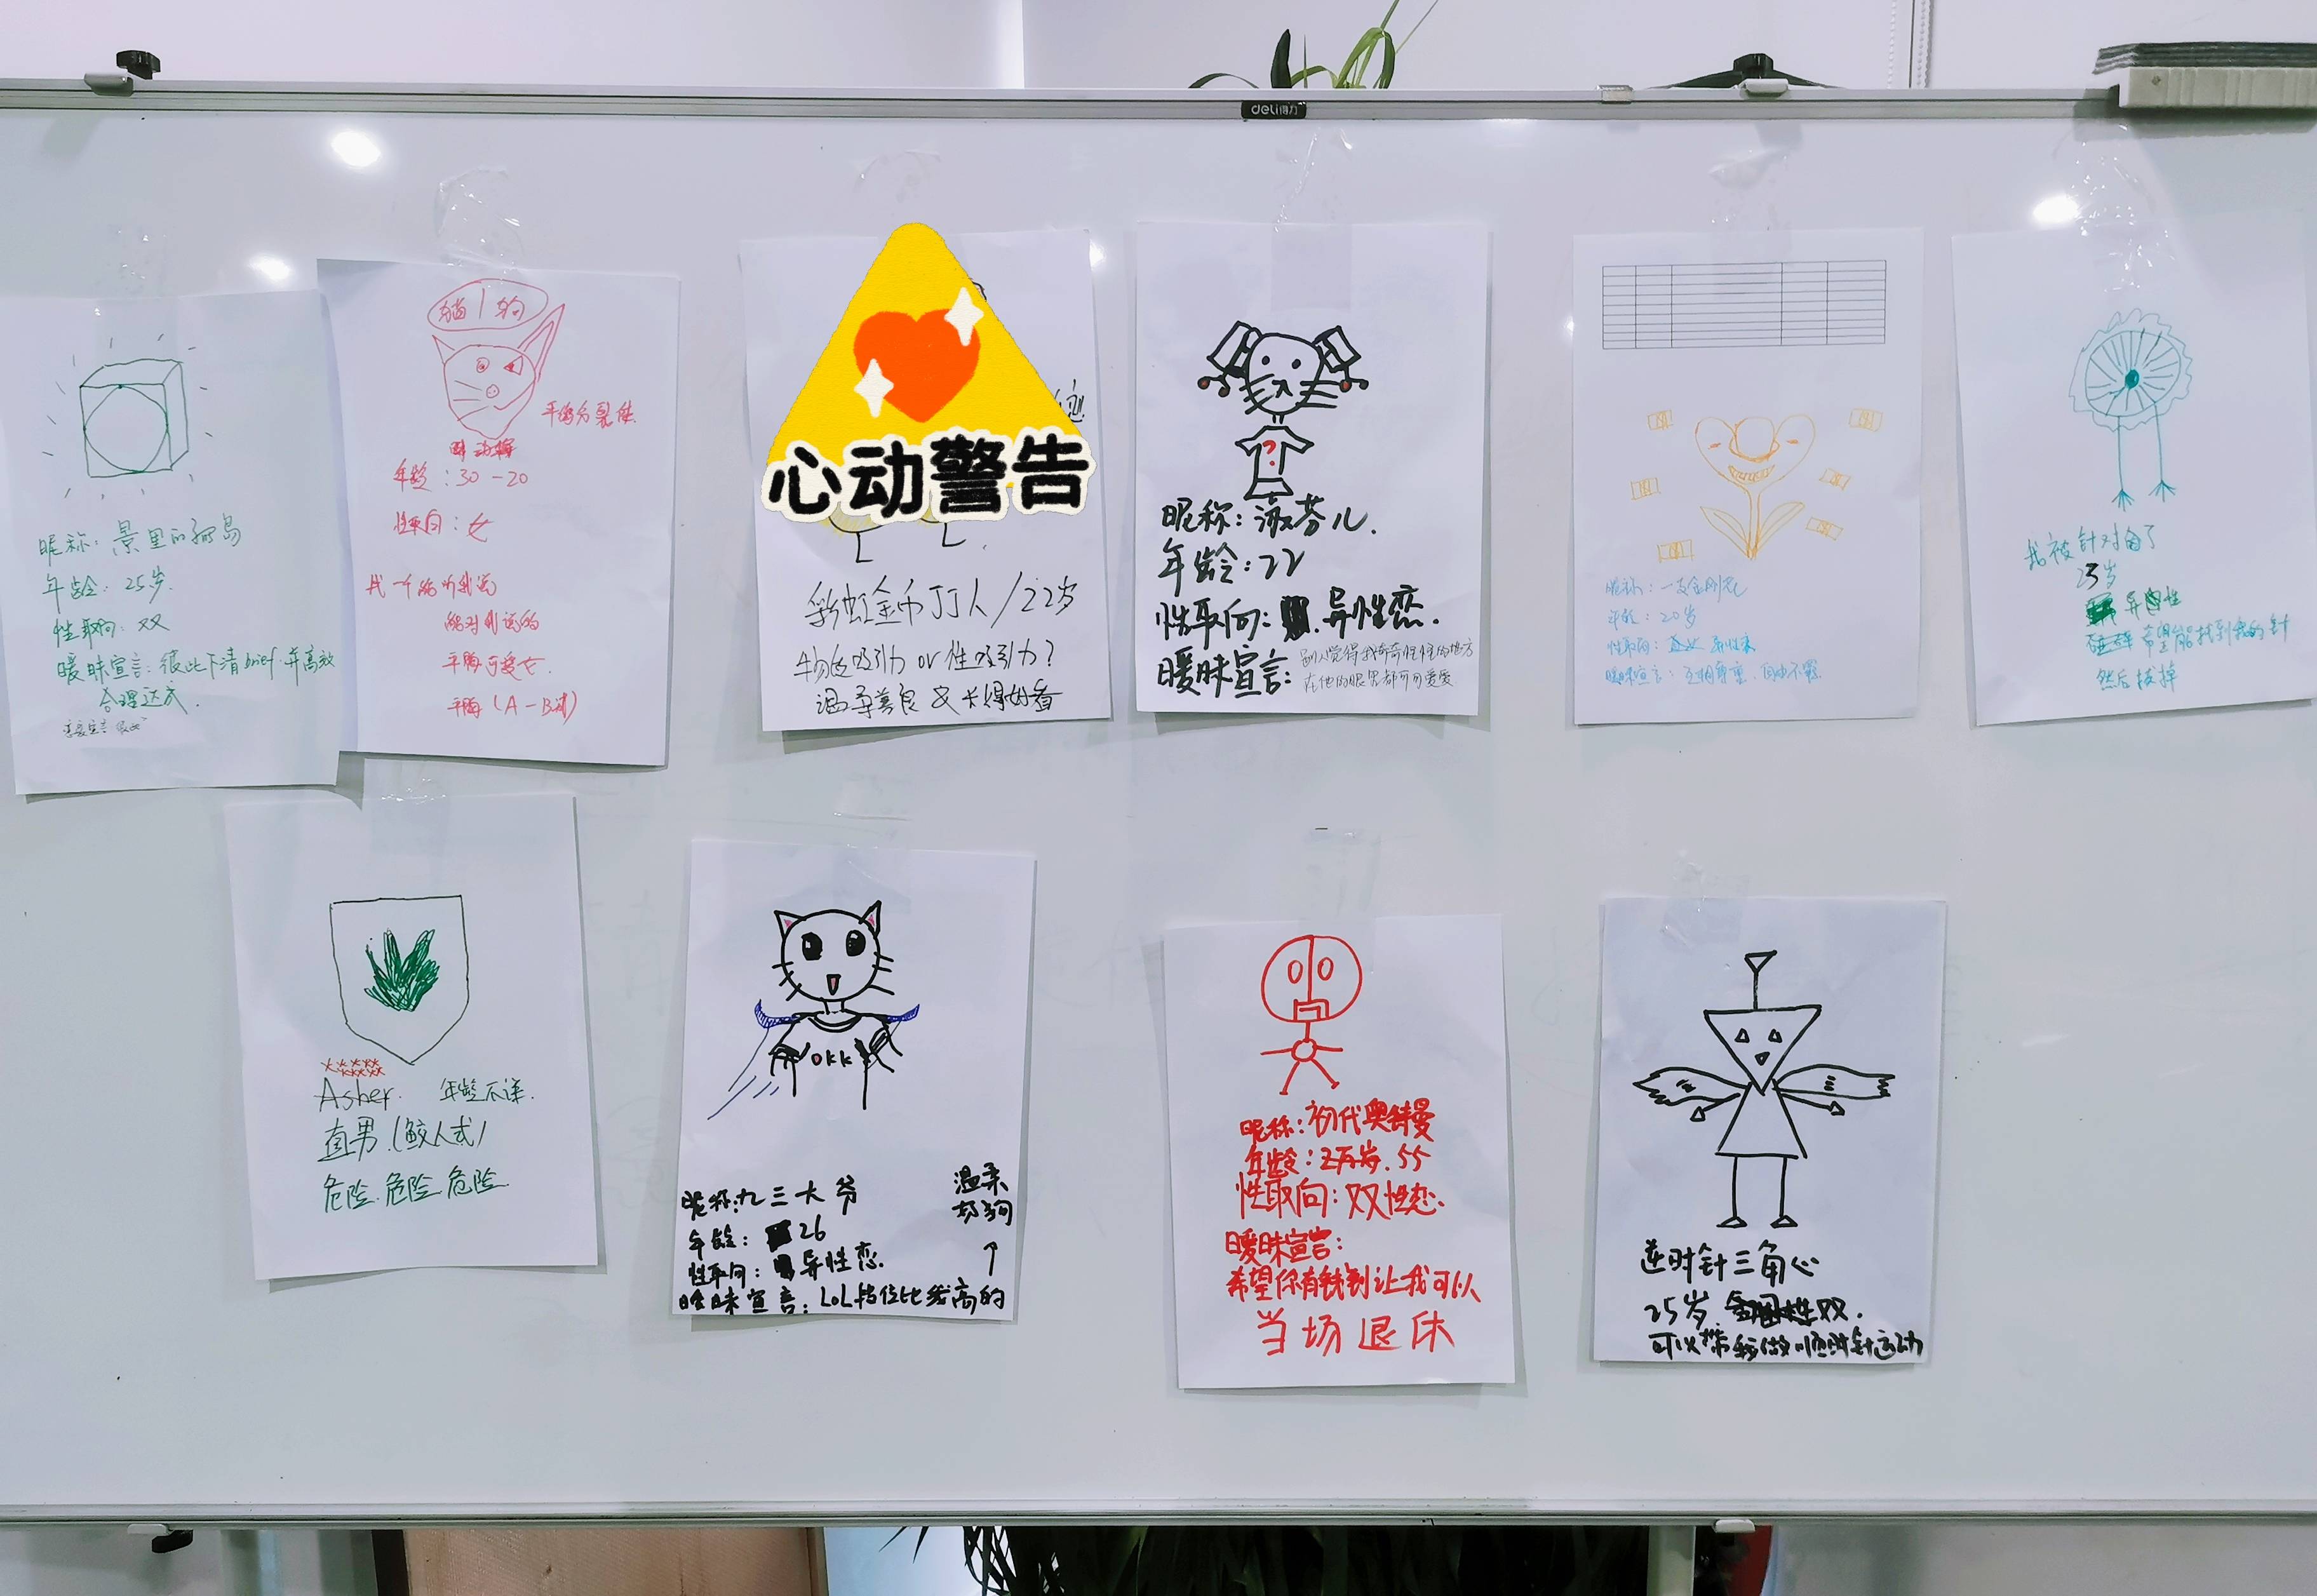 deli得力
昵称：景里的孤岛
年龄：25岁.
性取向：双
暧昧宣言：彼此下清brief.并高效
合理达成.
猫|狗
年龄：30-20
性取向：女
找一个能听我说
能对我说的
平胸可爱女.
心动警告
彩虹金币打人/22岁
物质吸引力or性吸引力?
温柔善良&长得好看
?
昵称：淑芬儿.
年龄：22
性取向：异性恋.
暧昧宣言：别人觉得我奇奇怪怪的地方
在他的眼里都可可爱爱
昵称：一支金刚花
年龄：20岁
性取向：异性恋
暧昧宣言：互相尊重、自由不羁
我被针对角了
25岁
异性
希望能找到我的针
然后拔掉
Asher. 年龄不详.
直男.(鲛人式)
危险.危险.危险.
OKK
昵称：九三大爷
年龄：26
性取向：异性恋.
暧昧宣言：LOL档位比我高的
温柔
奶狗
昵称：初代奥特曼
年龄：2万岁.55
性取向：双性恋.
暧昧宣言：
希望你有钱到让我可以
当场退休
逆时针三角心
25岁 双.
可以带我做顺时针运动